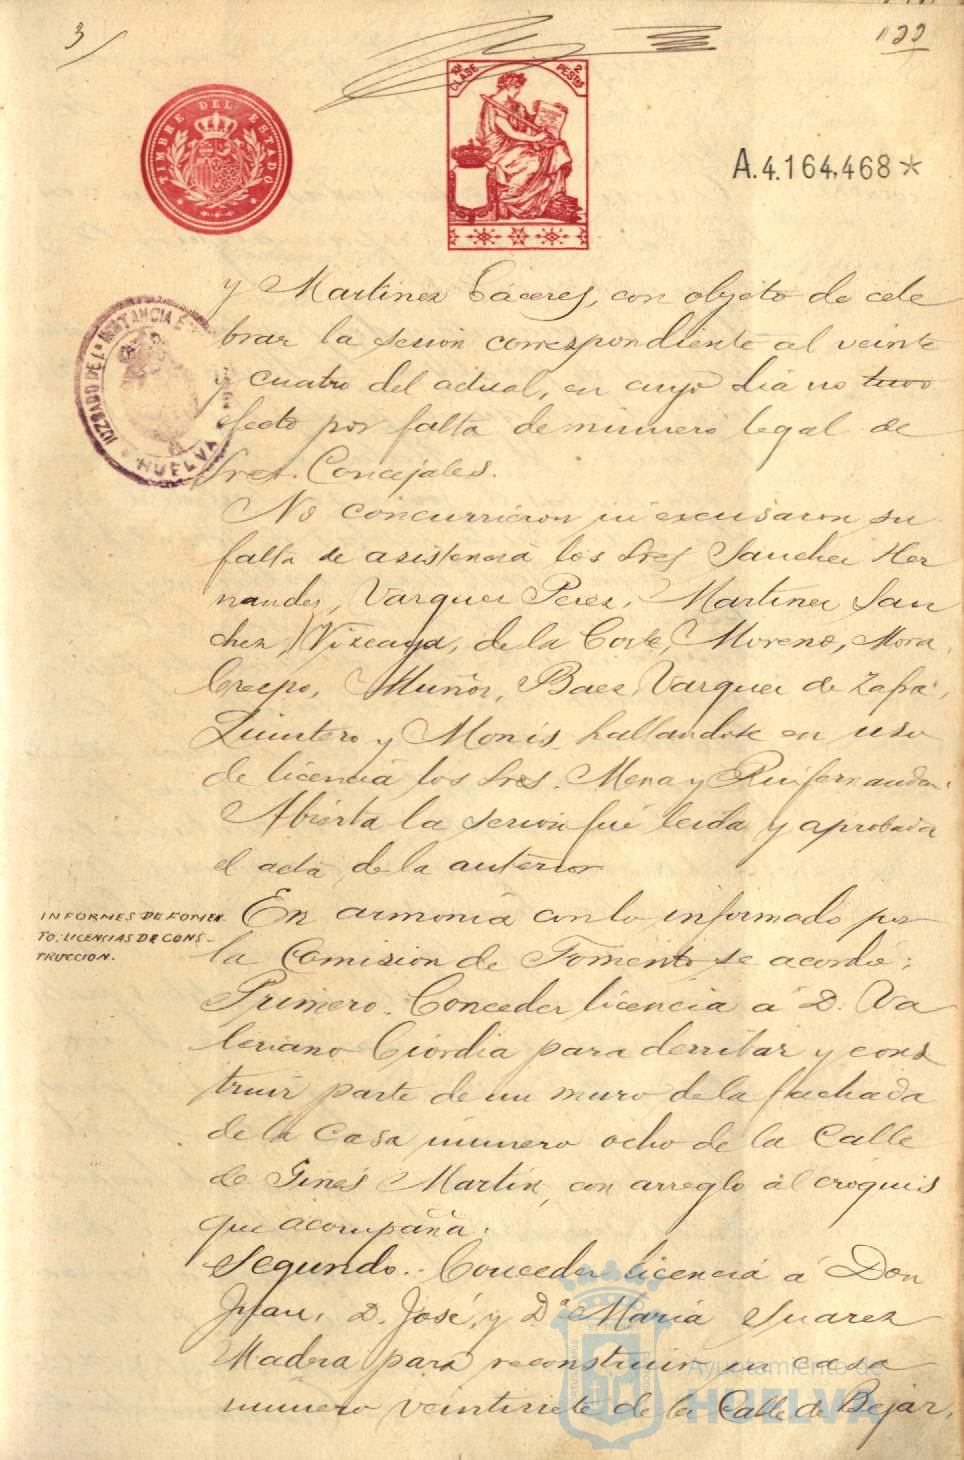 3
122
TIMBRE DEL ESTADO
10ª CLASE
2 PESTAS
A.4.164,468*
JUZGADO DE 1ª INSTANCIA E
HUELVA
y Martinez Cáceres, con objeto de cele
brar la sesion correspondiente al veinte
y cuatro del actual, en cuyo dia no tuvo
efecto por falta de número legal de
Sres. Concejales.
No concurrieron ni excusaron su
falta de asistencia los Sres Sanchez Her
nandez, Vazquez Perez, Martinez San
chez, Vizcaya, de la Corte, Moreno, Mora,
Crespo, Muñoz, Baez, Vazquez de Zafra,
Quintero y Monis, hallandose en uso
de licencia los Sres. Mena y Ruifernandez.
Abierta la sesion fué leida y aprobada
el acta de la anterior
INFORMES DE FOMEN-
TO: LICENCIAS DE CONS-
TRUCCION.
En armonia con lo informado por
la Comision de Fomento se acordó:
Primero. Conceder licencia á D. Va
leriano Ciordia para derribar y cons
truir parte de un muro de la fachada
de la casa número ocho de la Calle
de Ginés Martin, con arreglo al cróquis
que acompaña.
Segundo.- Conceder licencia á Don
Juan, D. José, y D.ª Maria Suarez
Madera para reconstruir su casa
número veintisiete de la Calle de Bejar,
Ayuntamiento de
HUELVA